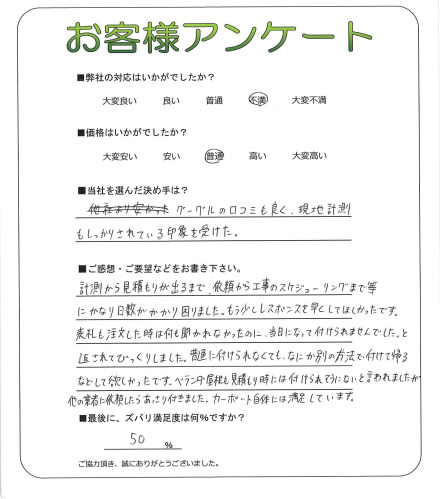 お客様アンケート
■弊社の対応はいかがでしたか?
大変良い 良い 普通 不満 大変不満
■価格はいかがでしたか?
大変安い 安い 普通 高い 大変高い
■当社を選んだ決め手は?
他社より安かった グーグルの口コミも良く、現地計測
もしっかりされている印象を受けた。
■ご感想・ご要望などをお書き下さい。
計測から見積もりが出るまで、依頼から工事のスケジューリングまで等
にかなり日数がかかり困りました。もう少しレスポンスを早くしてほしかったです。
表札も注文した時は何も聞かれなかったのに、当日になって付けられませんでした。と
返されてびっくりしました。普通に付けられなくても、なにか別の方法で付けて帰る
などして欲しかったです。ベランダ屋根も見積もり時には付けられてうにないと言われましたが
他の業者に依頼したらあっさり付きました。カーポート自体には満足しています。
■最後に、ズバリ満足度は何%ですか?
50 %
ご協力頂き、誠にありがとうございました。